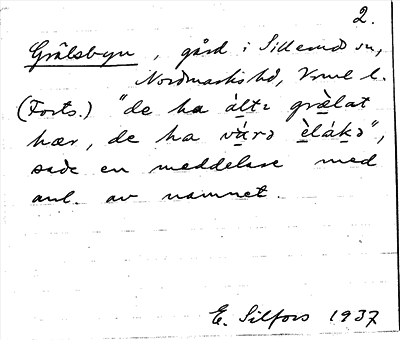 2.
Grälsbyn, gård i Sillerud sn,
Nordmarks hd, Vrml l.
(Forts.) "de ha àltɩ græ̀lat
hær, de ha várə èlákə",
sade en meddelare med
anl. av namnet.
E. Silfors 1937